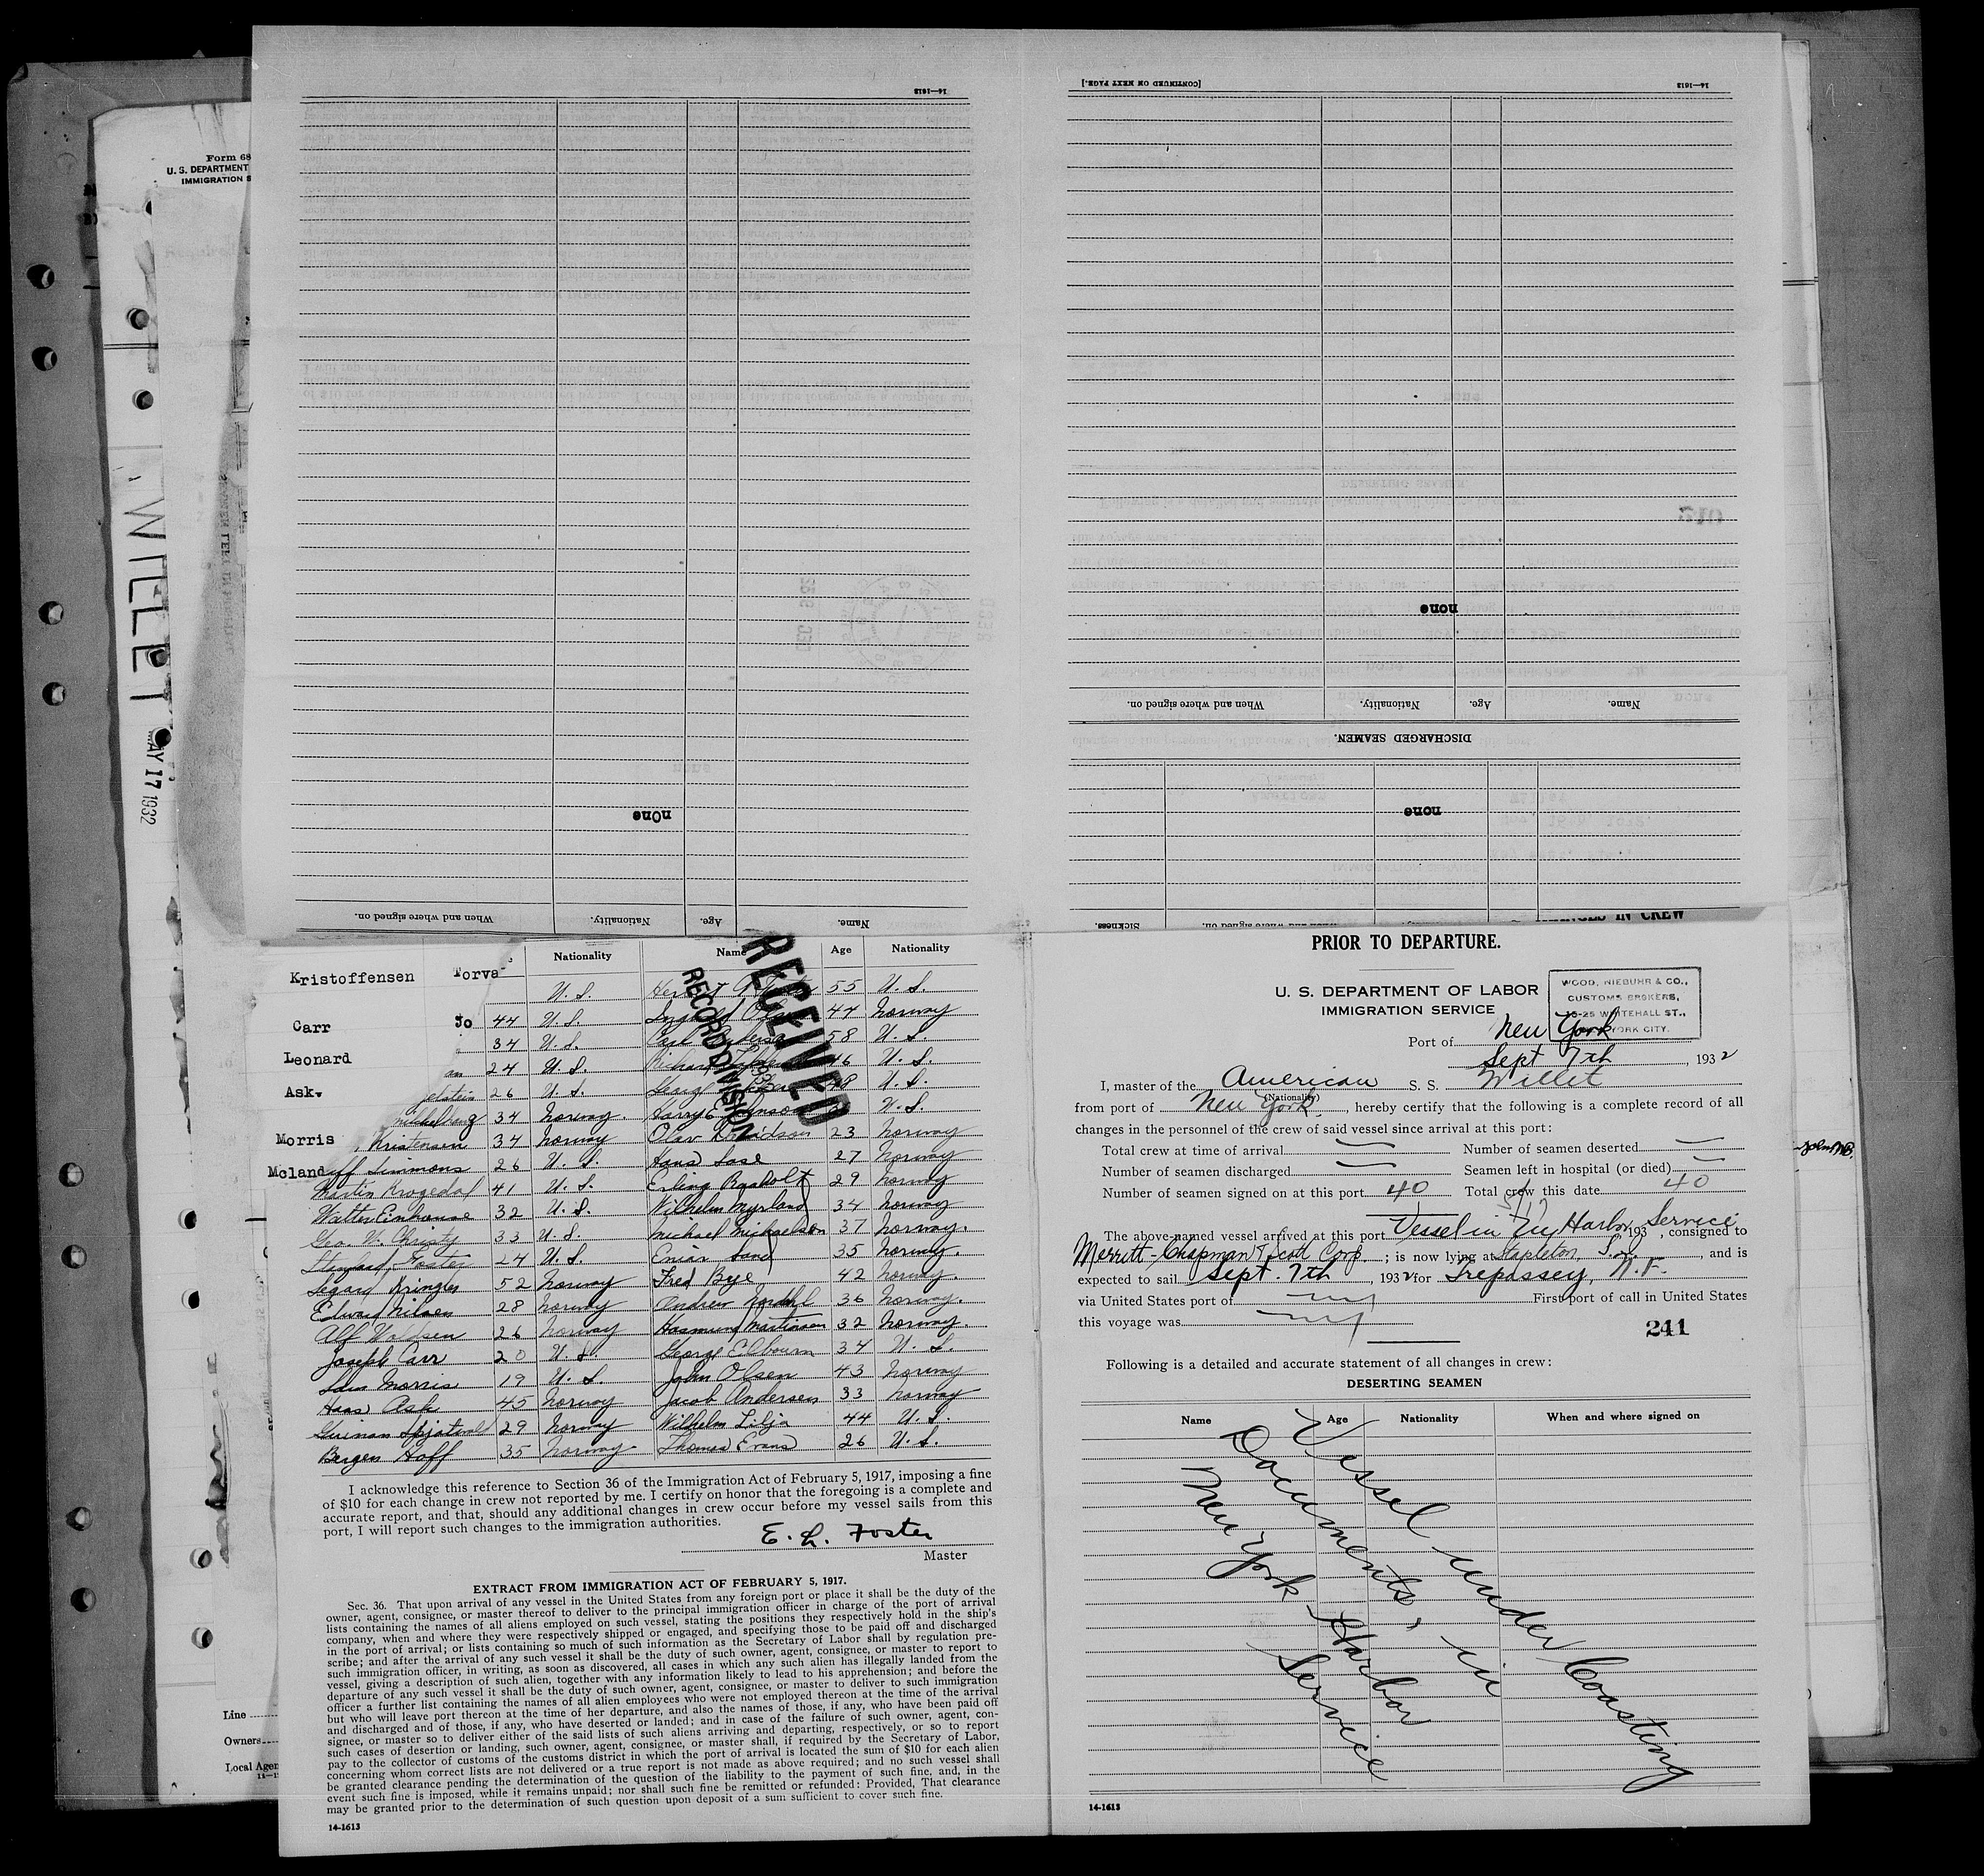 14—1613
[CONTINUED ON NEXT PAGE.]
14—1613
Form 68
U. S. DEPARTMENT
IMMIGRATION S
WILLET
MAY 17 1932
none
When and where signed on.
Nationality.
Age.
Name.
none
When and where signed on.
Nationality.
Age.
Name.
DISCHARGED SEAMEN.
none
Sickness.
IN CREW
Nationality
Name
Age
Nationality
Kristoffensen Torva
U. S. 55 U. S.
Carr Jo 44 U. S. 44 Norway
34 U. S. 58 U. S.
Leonard
24 U. S. 46 U. S.
Ask.
26 U. S. 48 U. S.
34 Norway Harry E Johnson U. S.
Morris
Kristensen 34 Norway Olav Davidson 23 Norway
Mcland
Simmons 26 U. S. Hans Lase 27 Norway
Martin Krogedal 41 U. S. Erling Raaholt 29 Norway
Walter Einhouse 32 U. S. Wilhelm Myrland 34 Norway
Geo. V. Christy 33 U. S. Michael Michaelson 37 Norway.
Foster 24 U. S. Einar Sand 35 Norway.
Kringlen 52 Norway Fred Bye 42 Norway.
Edward Nilsen 28 Norway Andrew 36 Norway.
Alf 26 Norway Martinsen 32 Norway.
Joseph Carr 20 U. S. George Elbourn 34 U. S.
Morris 19 U. S. John Olsen 43 Norway
Hans Ask 45 Norway Jacob Andersen 33 Norway
29 Norway Wilhelm Lilja 44 U. S.
Bergen Hoff 35 Norway Thomas Evans 26 U. S.
RECEIVED
RECORD DIVISION
I acknowledge this reference to Section 36 of the Immigration Act of February 5, 1917, imposing a fine
of $10 for each change in crew not reported by me. I certify on honor that the foregoing is a complete and
accurate report, and that, should any additional changes in crew occur before my vessel sails from this
port, I will report such changes to the immigration authorities.
E. L. Foster
Master
EXTRACT FROM IMMIGRATION ACT OF FEBRUARY 5, 1917.
Sec. 36. That upon arrival of any vessel in the United States from any foreign port or place it shall be the duty of the
owner, agent, consignee, or master thereof to deliver to the principal immigration officer in charge of the port of arrival
lists containing the names of all aliens employed on such vessel, stating the positions they respectively hold in the ship's
company, when and where they were respectively shipped or engaged, and specifying those to be paid off and discharged
in the port of arrival; or lists containing so much of such information as the Secretary of Labor shall by regulation pre-
scribe; and after the arrival of any such vessel it shall be the duty of such owner, agent, consignee, or master to report to
such immigration officer, in writing, as soon as discovered, all cases in which any such alien has illegally landed from the
vessel, giving a description of such alien, together with any information likely to lead to his apprehension; and before the
departure of any such vessel it shall be the duty of such owner, agent, consignee, or master to deliver to such immigration
officer a further list containing the names of all alien employees who were not employed thereon at the time of the arrival
but who will leave port thereon at the time of her departure, and also the names of those, if any, who have been paid off
and discharged and of those, if any, who have deserted or landed; and in case of the failure of such owner, agent, con-
signee, or master so to deliver either of the said lists of such aliens arriving and departing, respectively, or so to report
such cases of desertion or landing, such owner, agent, consignee, or master shall, if required by the Secretary of Labor,
pay to the collector of customs of the customs district in which the port of arrival is located the sum of $10 for each alien
concerning whom correct lists are not delivered or a true report is not made as above required; and no such vessel shall
be granted clearance pending the determination of the question of the liability to the payment of such fine, and, in the
event such fine is imposed, while it remains unpaid; nor shall such fine be remitted or refunded: Provided, That clearance
may be granted prior to the determination of such question upon deposit of a sum sufficient to cover such fine.
14-1613
Line
Owners
Local Agen
PRIOR TO DEPARTURE.
U. S. DEPARTMENT OF LABOR
IMMIGRATION SERVICE
WOOD, NIEBUHR & CO.,
CUSTOMS BROKERS,
-25 WHITEHALL ST.,
YORK CITY.
Port of New York
Sept 7th, 1932
I, master of the American S. S. Willet
(Nationality)
from port of New York, hereby certify that the following is a complete record of all
changes in the personnel of the crew of said vessel since arrival at this port:
Total crew at time of arrival — Number of seamen deserted —
Number of seamen discharged — Seamen left in hospital (or died) —
Number of seamen signed on at this port 40 Total crew this date 40
The above-named vessel arrived at this port Vessel in N.Y. Harbor Service 193 , consigned to
Merritt-Chapman & Scott Corp.; is now lying at Stapleton, S. I., and is
expected to sail Sept. 7th 1932 for Trepassey, N. F.
via United States port of First port of call in United States
this voyage was
241
Following is a detailed and accurate statement of all changes in crew:
DESERTING SEAMEN
Name
Age
Nationality
When and where signed on
Vessel under Coasting
Documents, in
New York Harbor
Service
14-1613